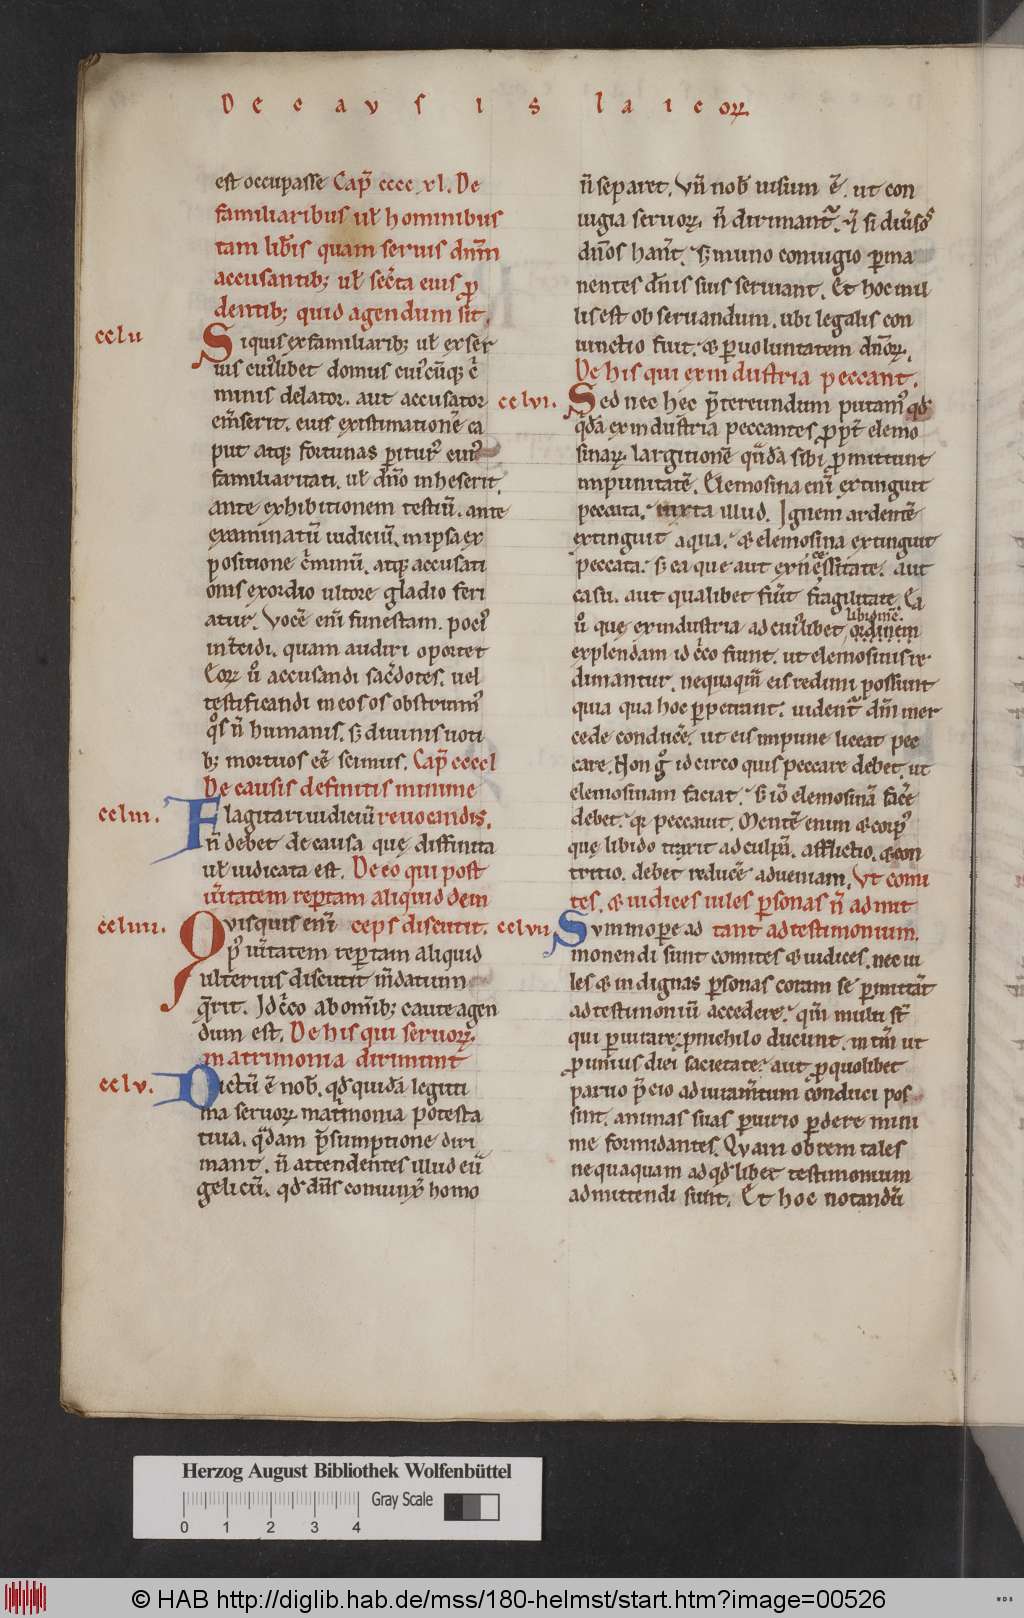 De cavsis laicoꝝ.
est occupasse Cap̃ cccc xl. De
familiaribus ul̃ hominibus
tam lib̃is quam seruis dñm̃
accusantib; ul̃ secr̃ta eius ꝓ
dentib; quid agendum sit.
cclii
Si quis ex familiarib; ul̃ ex ser
uis cui᷒libet domus cui᷒cũq; c̃
minis delator. aut accusator
em̃serit. eius existimationẽ ca
put atq; fortunas petitur᷒ cui᷒
familiaritati. ul̃ dño inheserit.
ante exhibitionem testiũ. ante
examinatũ iudiciũ. in ipsa ex
positione c̃minũ. atq; accusati
onis exordio ultore gladio feri
atur. Vocẽ eni᷒ funestam. poci᷒
int̃cidi. quam audiri oportet
Eoꝝ ũ accusandi sac̃dotes. uel
testificandi in eos os obstruim᷒
q̊s ñ humanis. s; diuinis uoti
b; mortuos eẽ scimus. Cap̃ ccccl
De causis definitis minime
ccliii.
Flagitari iudiciũ reuocandis.
ñ debet de causa quę diffinita
ul̃ iudicata est. De eo qui post
ũitatem rep̱tam aliquid dem
ccliiii.
Qvisquis eni᷒ ceps discutit.
p᷒ ũitatem rep̱tam aliquid
ulterius discutit m̃datium
q̃rit. Idc̃co ab om̃ib; caute agen
dum est. De his qui seruoꝝ.
matrimonia dirimunt
cclv.
Dictũ ẽ nob̃. qd̃ quidã legiti
ma seruoꝝ matr̃monia potesta
tiua. q̃dam p̃sumptione diri
mant. ñ attendentes illud eũ
gelicũ. qd̃ dñs coniunx̃ homo
ñ separet. Vñ nob̃ uisum ẽ. ut con
iugia seruoꝝ. ñ dirimant̃. &̃ si diũsos
dños hañt. s; in uno coniugio p̱ma
nentes dñis suis seruiant. Et hoc in il
lis est obseruandum. ubi legalis con
iunctio fuit. & p̱ uoluntatem dñoꝝ.
De his qui ex industria peccant.
cclvi.
Sed nec hęc p̃tereundum putam᷒ qd̃
q̃dã ex industria peccantes. ꝓpt̃ elemo
sinaꝝ largitionẽ quãdã sibi ꝓmittunt
impunitatẽ. Elemosina eni᷒ extinguit
peccata. iuxta illud. Ignem ardentẽ
extinguit aqua. & elemosina extinguit
peccata. s; ea que aut ex nęcessitate. aut
casu. aut qualibet fiũt fragilitate. Ea
ũ que ex industria ad cui᷒libet ordinem
libidinẽ.
explendam idc̃co fiunt. ut elemosinis re
dimantur. nequaq̃m eis redimi possunt
quia qua hoc perpetrant. uident̃ dm̃ mer
cede conducẽ. ut eis impune liceat pec
care. Non g̊ idcirco quis peccare debet. ut
elemosinam faciat. s; iõ elemosinã facẽ
debet. qr̃ peccauit. Mentẽ enim & corp᷒
quę libido traxit ad culpã. afflictio. & con
tritio. debet reducẽ ad ueniam. Vt comi
tes. & iudices uiles p̱sonas ñ admit
cclvii
Svmmopere ad tant ad testimonium.
monendi sunt comites & iudices. nec ui
les & indignas p̱sonas coram se p̱mittãt
ad testimoniũ accedere. qm̃ multi st̃
qui periurare. ꝓ nichilo ducunt. in tm̃ ut
ꝓ unius diei sacietate. aut ꝓ quolibet
paruo p̃cio ad iuram̃tum conduci pos
sint. animas suas periurio perdere mini
me formidantes. Quam ob rem tales
nequaquam ad qd̃libet testimonium
admittendi sunt. Et hoc notandũ
Herzog August Bibliothek Wolfenbüttel
Gray Scale
0 1 2 3 4
© HAB http://diglib.hab.de/mss/180-helmst/start.htm?image=00526